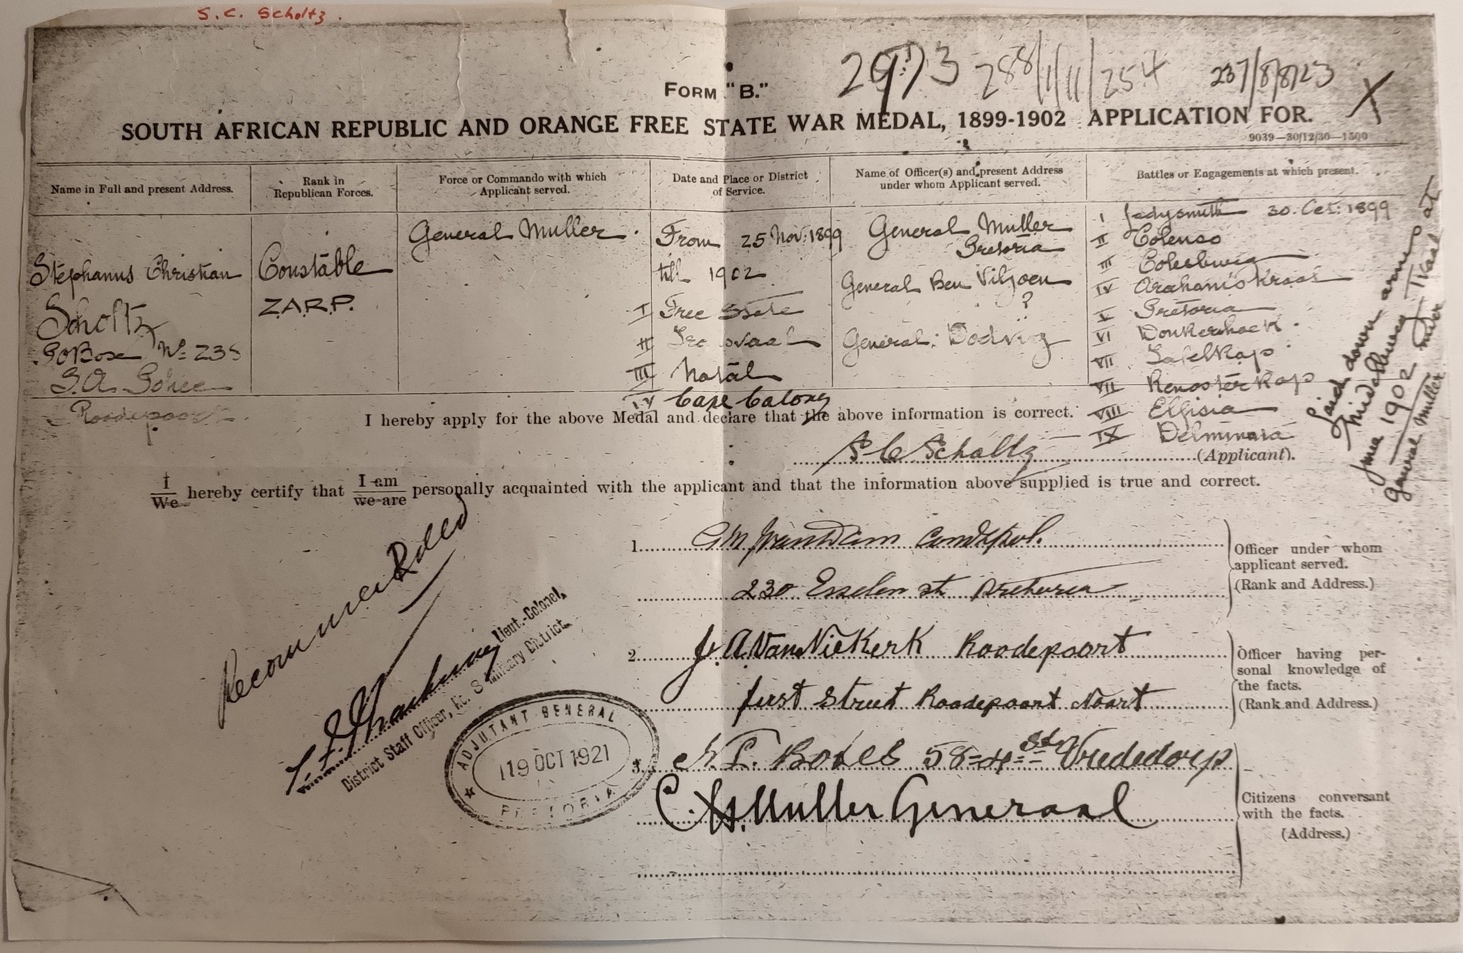 S.C. Scholtz.
2973 288/1/11/254 237/8/8/23 X
FORM "B."
SOUTH AFRICAN REPUBLIC AND ORANGE FREE STATE WAR MEDAL, 1899-1902 APPLICATION FOR.
9039—30/12/30—1500
Name in Full and present Address.
Stephanus Christian
Scholtz
P.O Box No 235
S.A. Police
Roodepoort
Rank in Republican Forces.
Constable
Z.A.R.P.
Force or Commando with which Applicant served.
General Muller.
Date and Place or District of Service.
From 25 Nov: 1899
till 1902
I Free State
II
III Natal
IV Cape Colony
Name of Officer(s) and present Address under whom Applicant served.
General Muller
Pretoria
General Ben Viljoen
?
General:
Battles or Engagements at which present.
I Ladysmith 30. Oct: 1899
II Colenso
III Colesburg
IV Abrahams Kraal
V Pretoria
VI Donkerhoek.
VII Tafelkop
VII Renosterkop
VIII
IX Delminuta
Laid down arms at
Middelburg Tvaal
June 1902 under
General Muller
I hereby apply for the above Medal and declare that the above information is correct.
S C Scholtz
(Applicant).
I/We hereby certify that I am/we are personally acquainted with the applicant and that the information above supplied is true and correct.
Recommended
Lieut.-Colonel,
District Staff Officer, No. 8 Military District.
ADJUTANT GENERAL
19 OCT 1921
PRETORIA
1.
230 Esselen st Pretoria
Officer under whom applicant served.
(Rank and Address.)
2. J. A. Van Niekerk Roodepoort
first Street Roodepoort Noort
Officer having personal knowledge of the facts.
(Rank and Address.)
3. Botes 58-4th St Vrededorp
C. H. Muller Generaal
Citizens conversant with the facts.
(Address.)